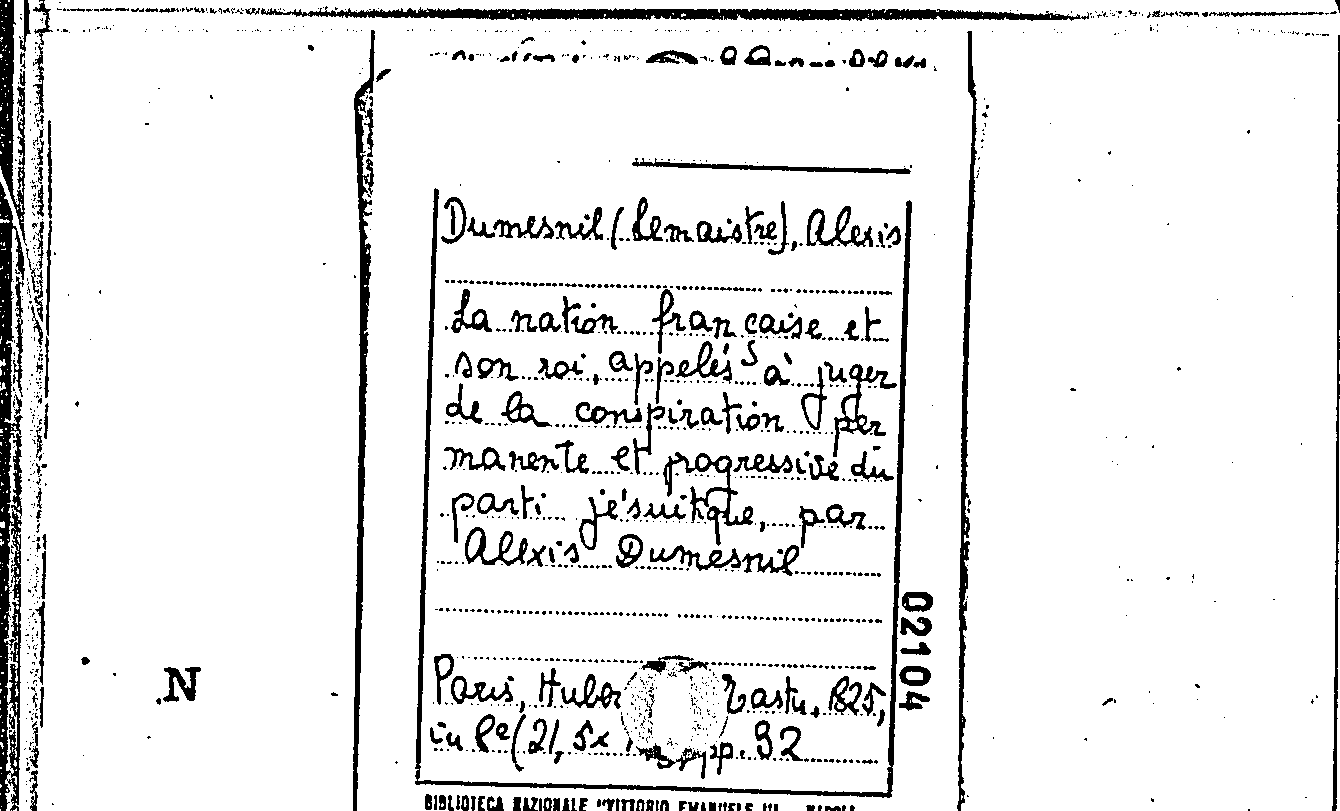 Dumesnil (Lemaistre), Alexis
La nation française et
son roi, appelés à juger
de la conspiration per
manente et progressive du
parti jésuitique, par
Alexis Dumesnil
02104
N
Paris, Huber Tastu, 825,
in 8º (21, 5x pp. 92
BIBLIOTECA NAZIONALE "VITTORIO EMANUELE III - NAPOLI